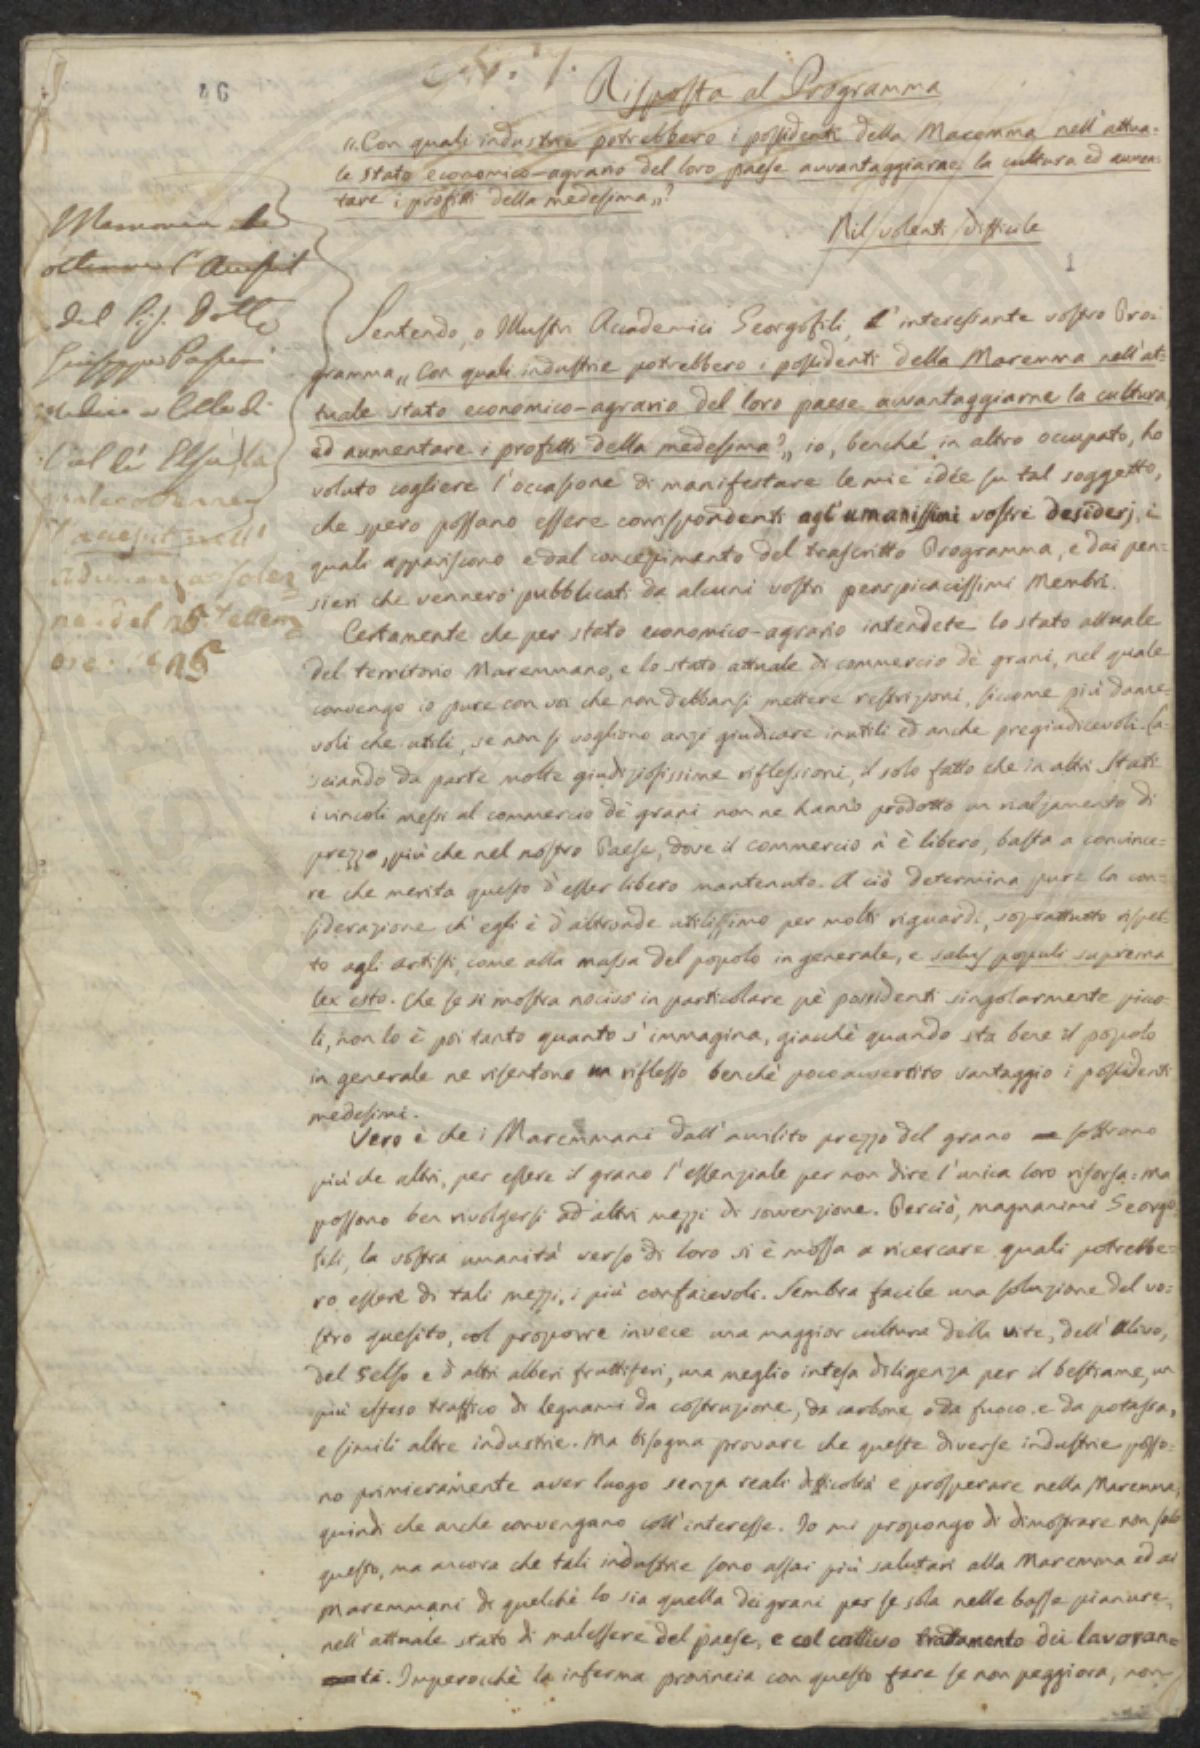 46
N.° 7.
Risposta al Programma
"Con quali industrie potrebbero i possidenti della Maremma nell'attua=
le stato economico-agrario del loro paese avvantaggiarne la cultura ed aumen=
tare i profitti della medesima"?
Nil volenti difficile
1
Memoria che
ottenne l'Accessit
del Sig. Dott.e
Giuseppe
medico a Colle di
Val d'Elsa, la
quale ottenne
l'accessit nell'
Adunanza solen
ne del 25 Settem
bre
Sentendo, o Illustri Accademici Georgofili, l'interessante vostro Pro=
gramma "Con quali industrie potrebbero i possidenti della Maremma nell'at=
tuale stato economico-agrario del loro paese avvantaggiarne la cultura,
ed aumentare i profitti della medesima?" io, benché in altro occupato, ho
voluto cogliere l'occasione di manifestare le mie idée su tal soggetto,
che spero possano essere corrispondenti agl'umanissimi vostri desiderj, i
quali appariscono e dal concepimento del trascritto Programma, e dai pen=
sieri che vennero pubblicati da alcuni vostri perspicacissimi Membri.
Certamente che per stato economico-agrario intendete lo stato attuale
del territorio Maremmano, e lo stato attuale di commercio dè grani, nel quale
convengo io pure con voi che non debbansi mettere restrizioni, siccome più danne=
voli che utili, se non si vogliono anzi giudicare inutili ed anche pregiudicevoli. La=
sciando da parte molte giudiziosissime riflessioni, il solo fatto che in altri Stati
i vincoli messi al commercio dè grani non ne hanno prodotto un rialzamento di
prezzo, più che nel nostro Paese, dove il commercio n'è libero, basta a convince=
re che merita questo d'esser libero mantenuto. A ciò determina pure la con=
siderazione ch'egli è d'altronde utilissimo per molti riguardi, soprattutto rispet=
to agli artisti, come alla massa del popolo in generale, e salus populi suprema
lex esto. Che se si mostra nocivo in particolare pè possidenti singolarmente picco=
li, non lo è poi tanto quanto s'immagina, giacchè quando sta bene il popolo
in generale ne risentono un riflesso benchè poco avvertito vantaggio i possidenti
medesimi.
Vero è che i Maremmani dall'avvilito prezzo del grano soffrono
più che altri, per essere il grano l'essenziale per non dire l'unica loro risorsa: ma
possono ben rivolgersi ad altri mezzi di sovvenzione. Perciò, magnanimi Georgo=
fili, la vostra umanità verso di loro si è mossa a ricercare quali potrebbe=
ro essere di tali mezzi, i più confacevoli. Sembra facile una soluzione del vo=
stro quesito, col proporre invece una maggior cultura della vite, dell'ulivo,
del Gelso e d'altri alberi fruttiferi, una meglio intesa diligenza per il bestiame, un
più esteso traffico di legnami da costruzione, da carbone o da fuoco e da potassa,
e simili altre industrie. Ma bisogna provare che queste diverse industrie posso=
no primieramente aver luogo senza reali difficoltà e prosperare nella Maremma,
quindi che anche convengano coll'interesse. Io mi propongo di dimostrare non solo
questo, ma ancora che tali industrie sono assai più salutari alla Maremma ed ai
Maremmani di quelchè lo sia quella dei grani per se sola nelle basse pianure,
nell'attuale stato di malessere del paese, e col cattivo trattamento dei lavoran=
ti. Imperocchè la inferma provincia con questo fare se non peggiora, non